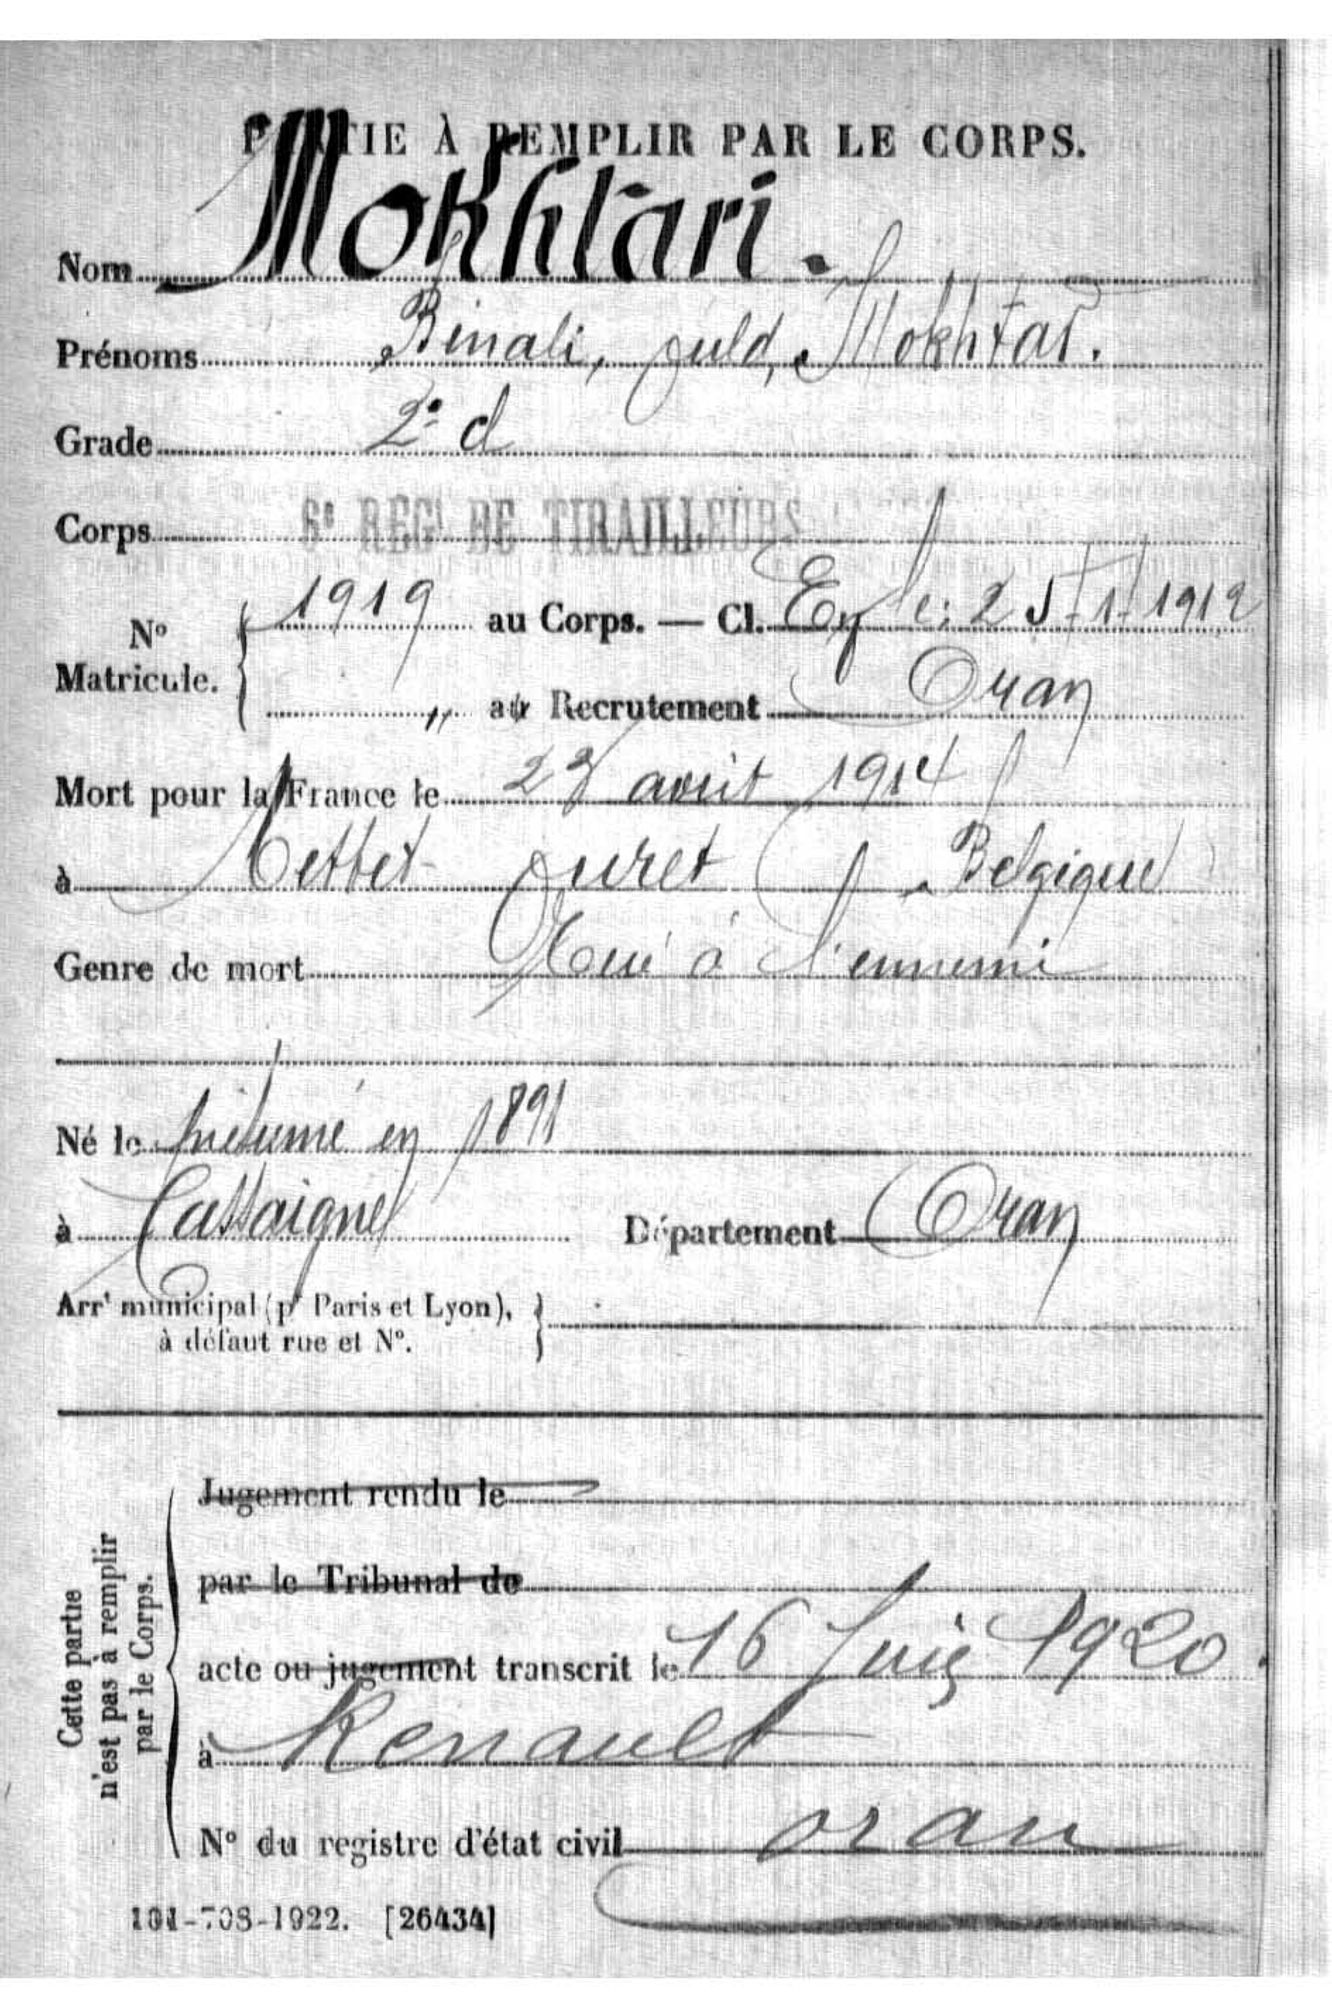 PARTIE À REMPLIR PAR LE CORPS.
Nom Mokhtari.
Prénoms Binali, ould, Mokhtar.
Grade 2e cl
Corps 6e REGt DE TIRAILLEURS
No Matricule. 1919 au Corps. — Cl. Eng le: 25-1-1912
" au Recrutement Oran
Mort pour la France le 23 août 1914
à Mettet Belgique
Genre de mort Tué à l'ennemi
Né le présumé en 1891
à Cassaigne Département Oran
Arrt municipal (pr Paris et Lyon),
à défaut rue et No.
Jugement rendu le
par le Tribunal de
acte ou jugement transcrit le 16 Juin 1920.
à Renault
No du registre d'état civil oran
Cette partie
n'est pas à remplir
par le Corps.
101-708-1922. [26434]